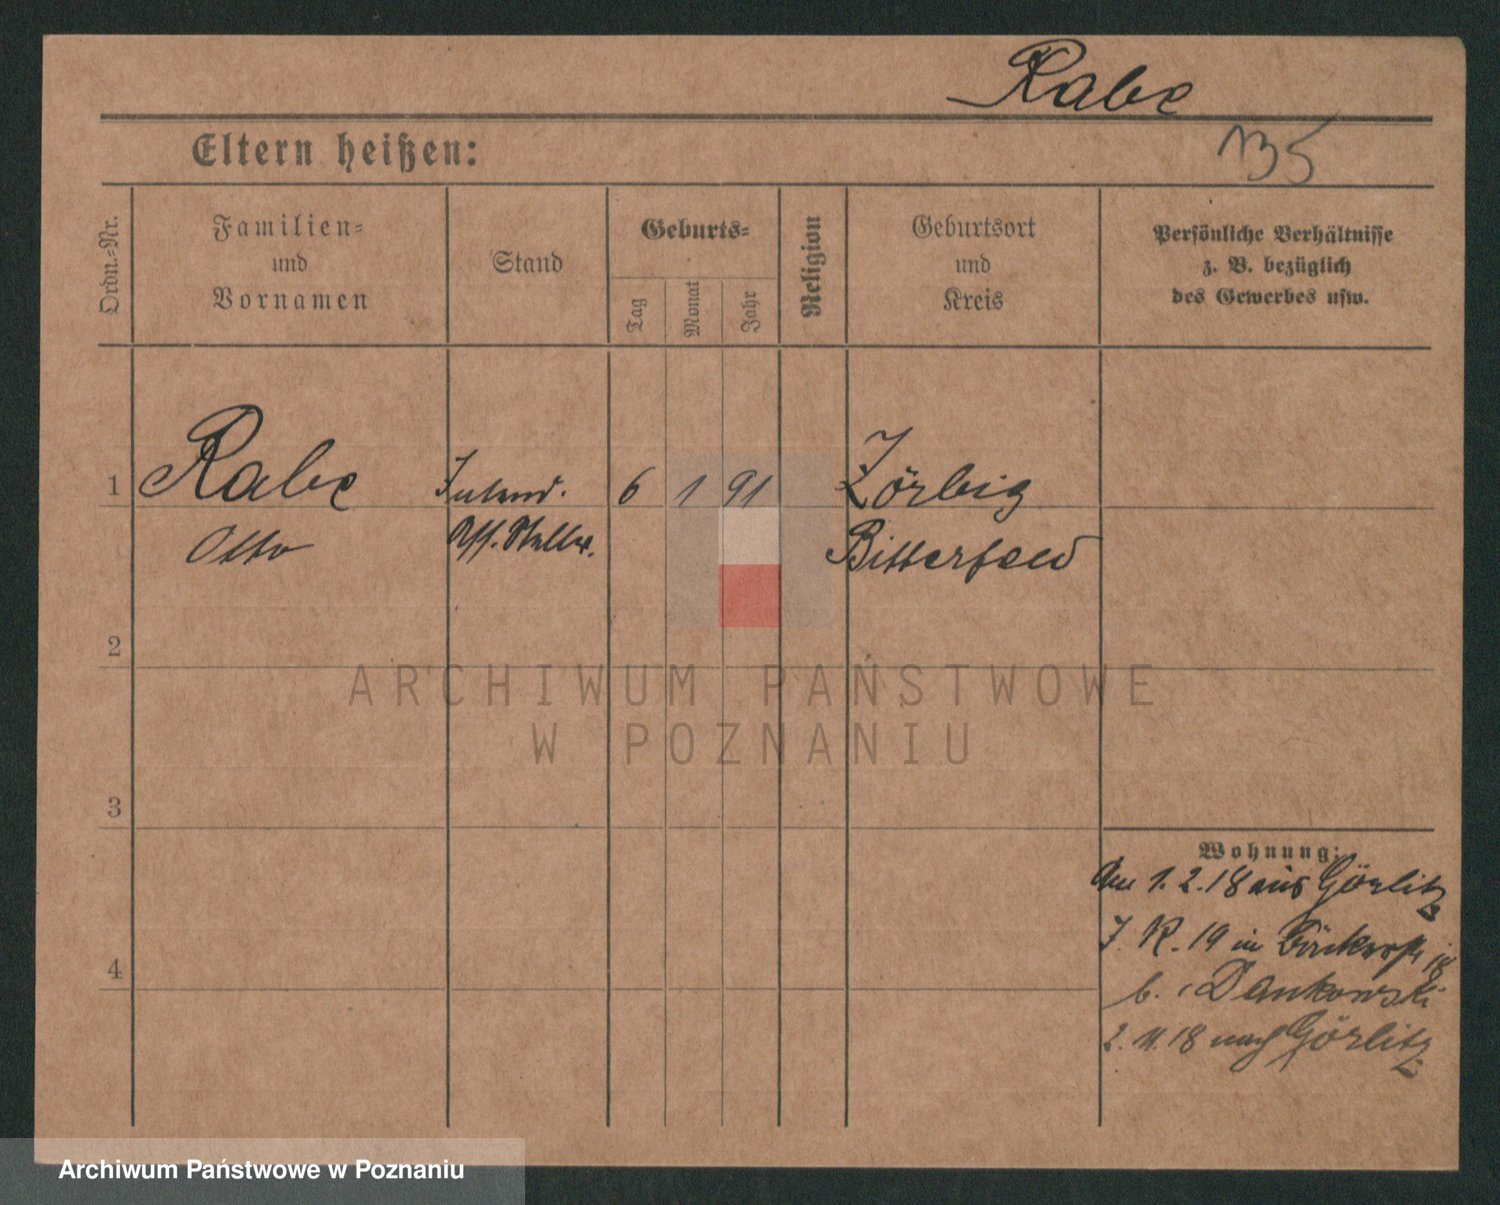 Rabe
135
Eltern heißen:
Ordn.-Nr.
Familien-
und
Vornamen
Stand
Geburts-
Tag
Monat
Jahr
Religion
Geburtsort
und
Kreis
Persönliche Verhältnisse
z. B. bezüglich
des Gewerbes usw.
1
Rabe
Otto
Intend.
6
1
91
Zörbig
Bitterfeld
2
3
4
Wohnung:
Am 1.2.18 aus Görlitz
J. R. 19 in
b. Dankowski
2. 11. 18 nach Görlitz
ARCHIWUM PAŃSTWOWE
W POZNANIU
Archiwum Państwowe w Poznaniu